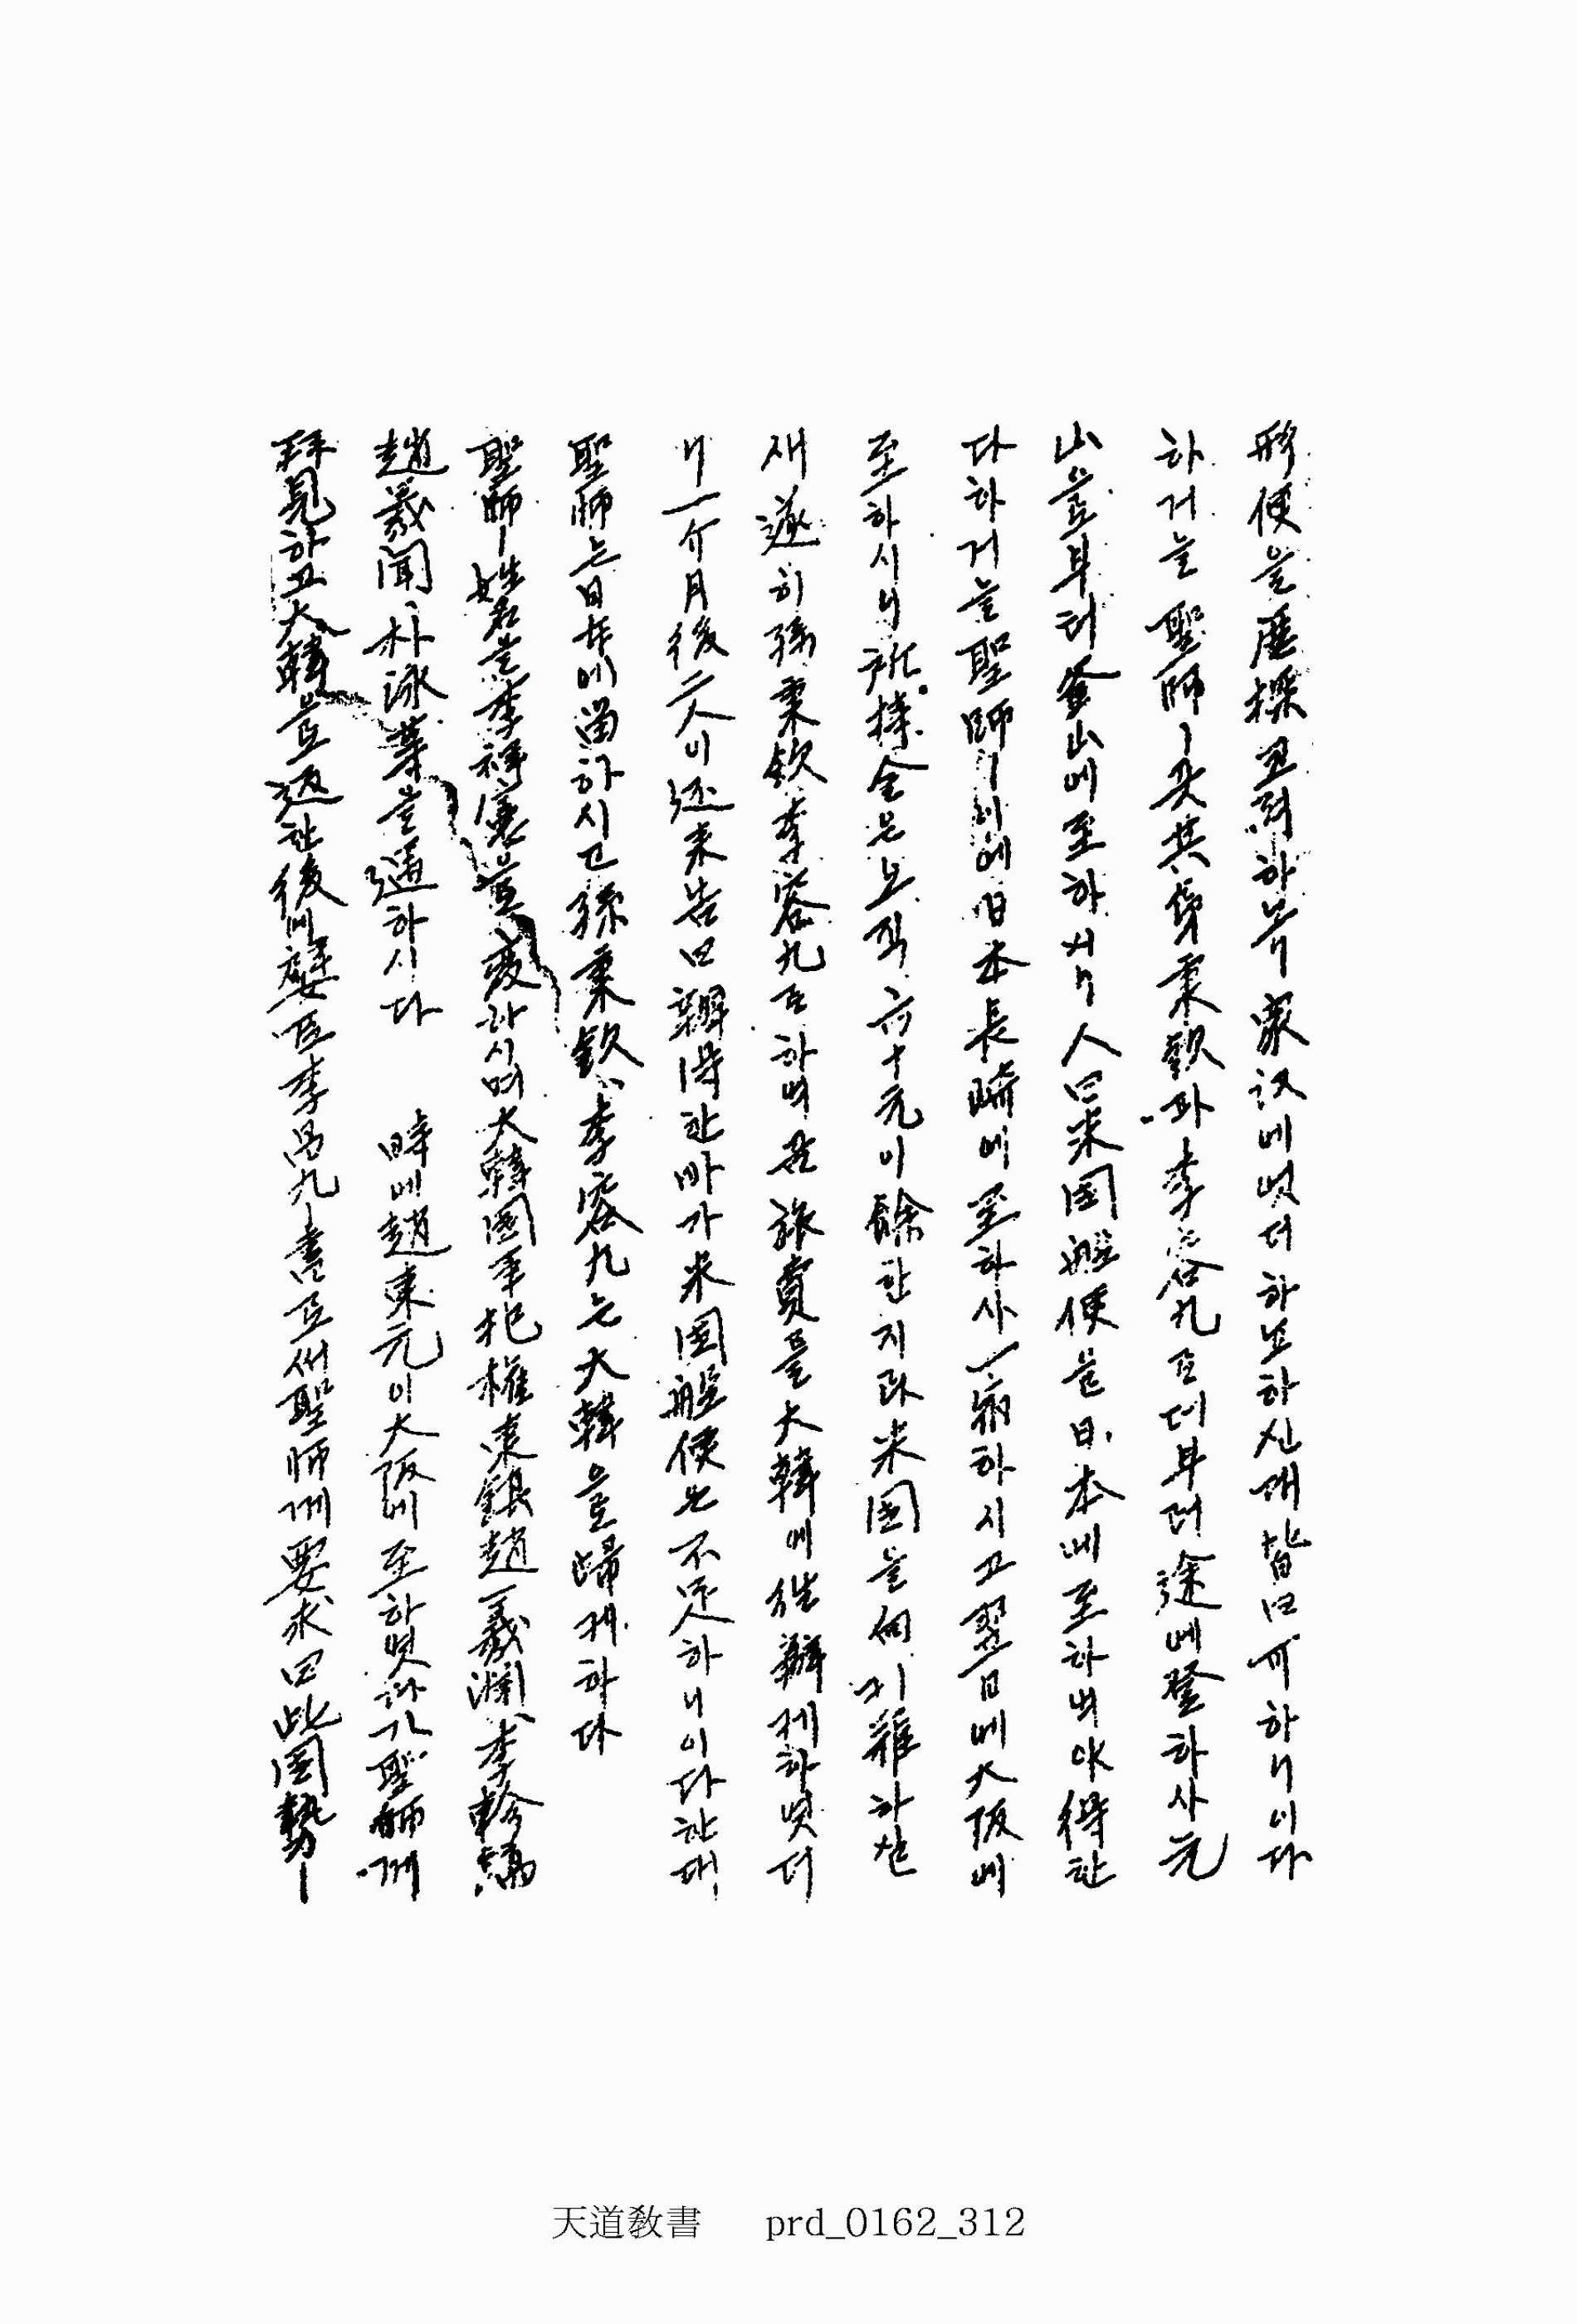 形便을 歷探코져 하노니 衆议에 엇더하뇨 하신대 皆曰 可하니이다
하거늘 聖師ㅣ 其弟秉欽과 李容九로 더부러 途에 登하사 元
山으로부터 釜山에 至하시니 人曰 米国船便은 日本에 至하여야 得한
다 하거늘 聖師ㅣ 이에 日本長崎에 至하사 一宿하시고 翌日에 大阪에
至하시니 所持金은 오직 六十元이 餘한지라 米国을 向키 難하신
새 遂히 孫秉欽 李容九로 하여곰 旅費를 大韓에 往辦케 하엿더
니 一个月後 二人이 还来告曰 辦得한 바가 米国船便은 不足하니이다 한대
聖師는 日本에 留하시고 孫秉欽、李容九는 大韓으로 歸케 하다
聖師ㅣ 姓名을 李祥憲으로 変하시며 大韓国事犯 權東鎮 趙羲渊、李軫鎬
趙羲聞、朴泳孝를 遇하시다 時에 趙東元이 大阪에 至하엿다가 聖師께
拜見하고 大韓으로 返한 後에 李昌九 書로써 聖師께 要求曰 此国勢ㅣ
天道敎書 prd_0162_312